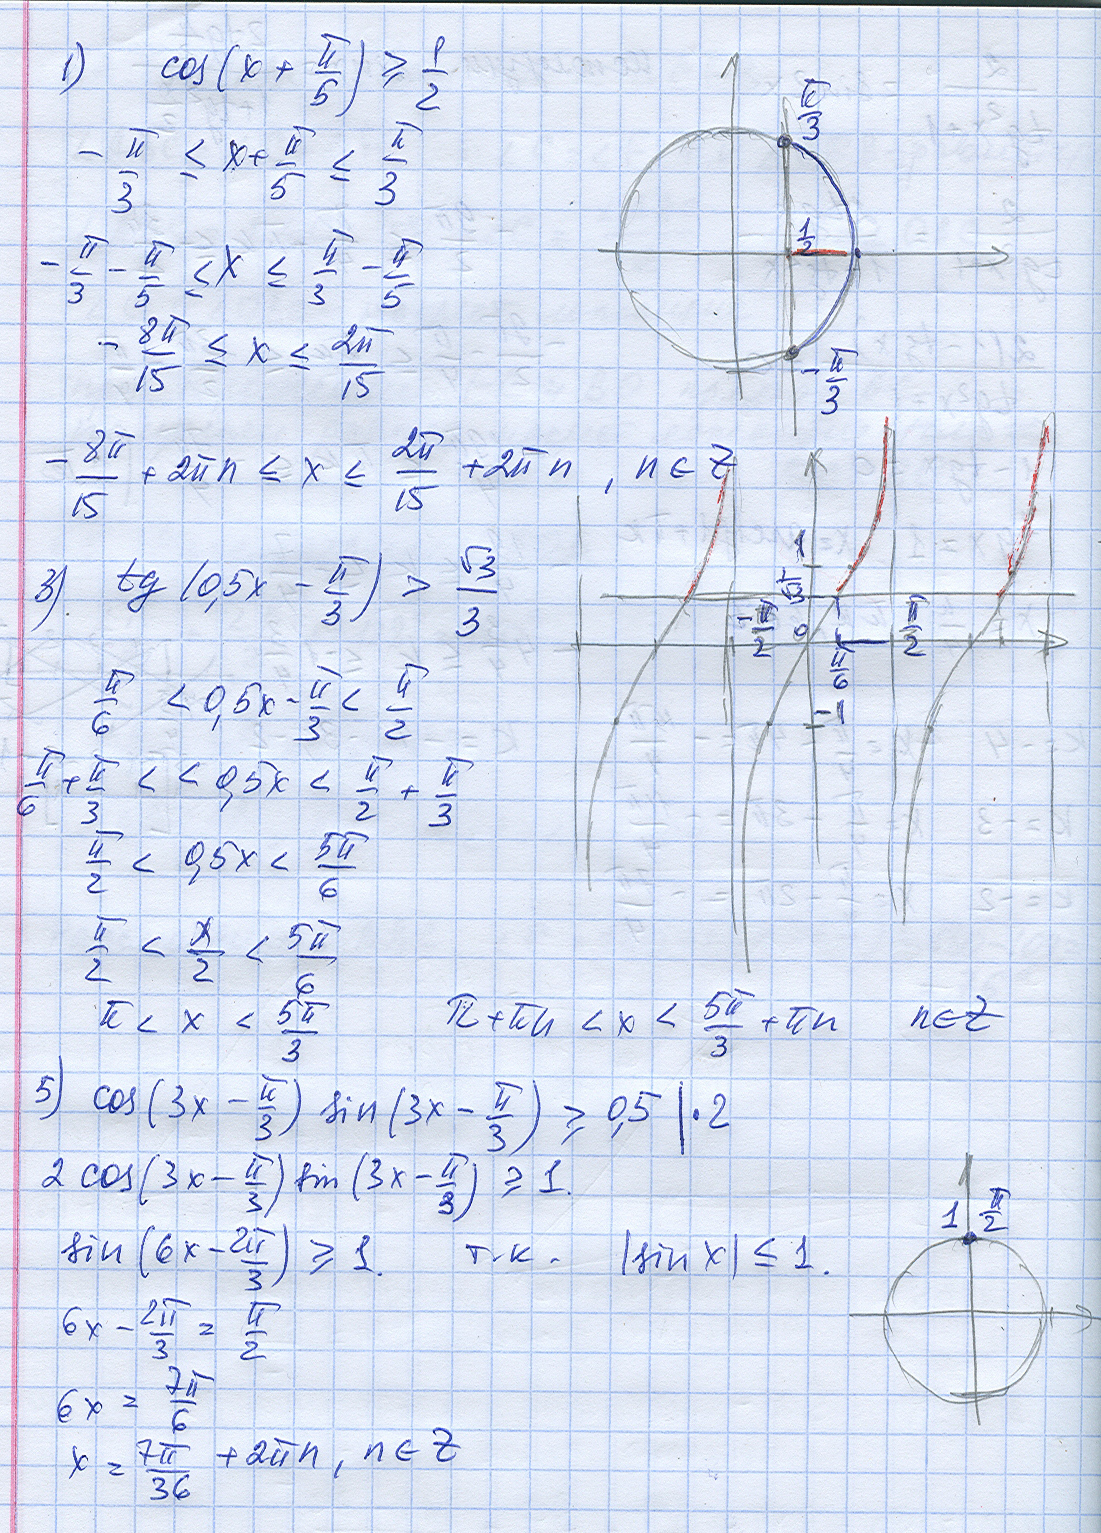 1) cos(x + π/5) ≥ 1/2
-π/3 ≤ x + π/5 ≤ π/3
-π/3 - π/5 ≤ x ≤ π/3 - π/5
-8π/15 ≤ x ≤ 2π/15
-8π/15 + 2πn ≤ x ≤ 2π/15 + 2πn , n ∈ Z
π/3
1/2
-π/3
3). tg (0,5x - π/3) > √3/3
π/6 < 0,5x - π/3 < π/2
π/6 + π/3 < < 0,5x < π/2 + π/3
π/2 < 0,5x < 5π/6
π/2 < x/2 < 5π/6
π < x < 5π/3 π + πn < x < 5π/3 + πn n ∈ Z
1
-π/2
0
π/6
π/2
-1
5) cos(3x - π/3) sin(3x - π/3) ≥ 0,5 | · 2
2 cos(3x - π/3) sin(3x - π/3) ≥ 1.
sin(6x - 2π/3) ≥ 1. т.к. |sin x| ≤ 1.
6x - 2π/3 = π/2
6x = 7π/6
x = 7π/36 + 2πn, n ∈ Z
1 π/2